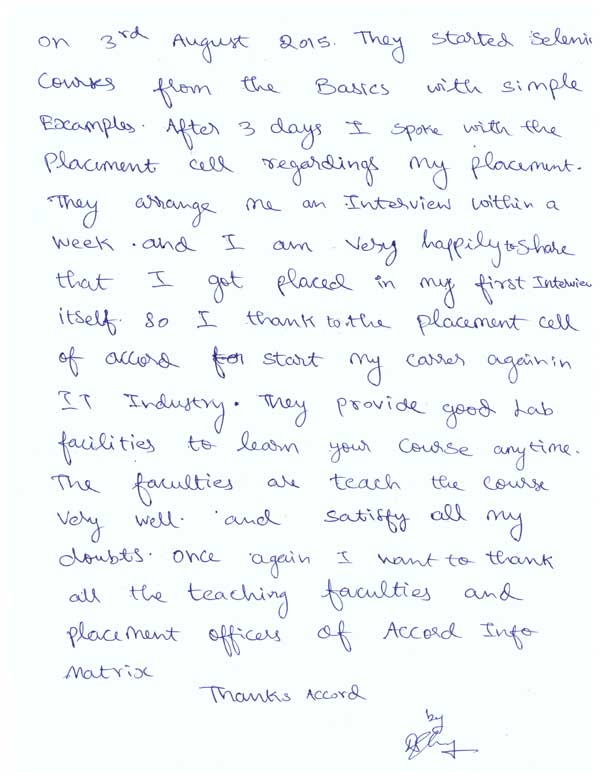 on 3rd August 2015. They started Seleni
Courses from the Basics with simple
Examples. After 3 days I spoke with the
Placement cell regardings my placement.
They arrange me an Interview within a
week. and I am very happily to share
that I got placed in my first Interview
itself. So I thank to the placement cell
of accord for start my carrer again in
IT Industry. They provide good Lab
facilities to learn your course anytime.
The faculties are teach the course
very well. and satisfy all my
doubts. once again I want to thank
all the teaching faculties and
placement officers of Accord Info
Matrix
Thanks Accord
by